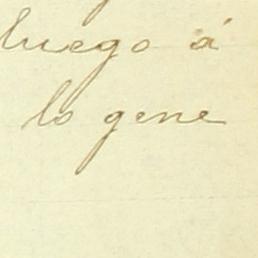 luego á
lo gene